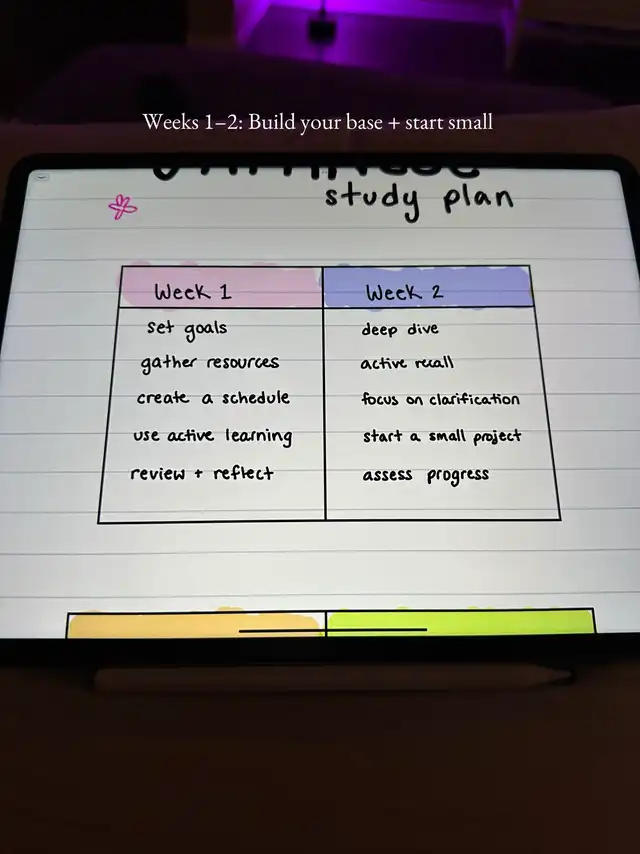 Weeks 1–2: Build your base + start small
study plan
Week 1
set goals
gather resources
create a schedule
use active learning
review + reflect
Week 2
deep dive
active recall
focus on clarification
start a small project
assess progress